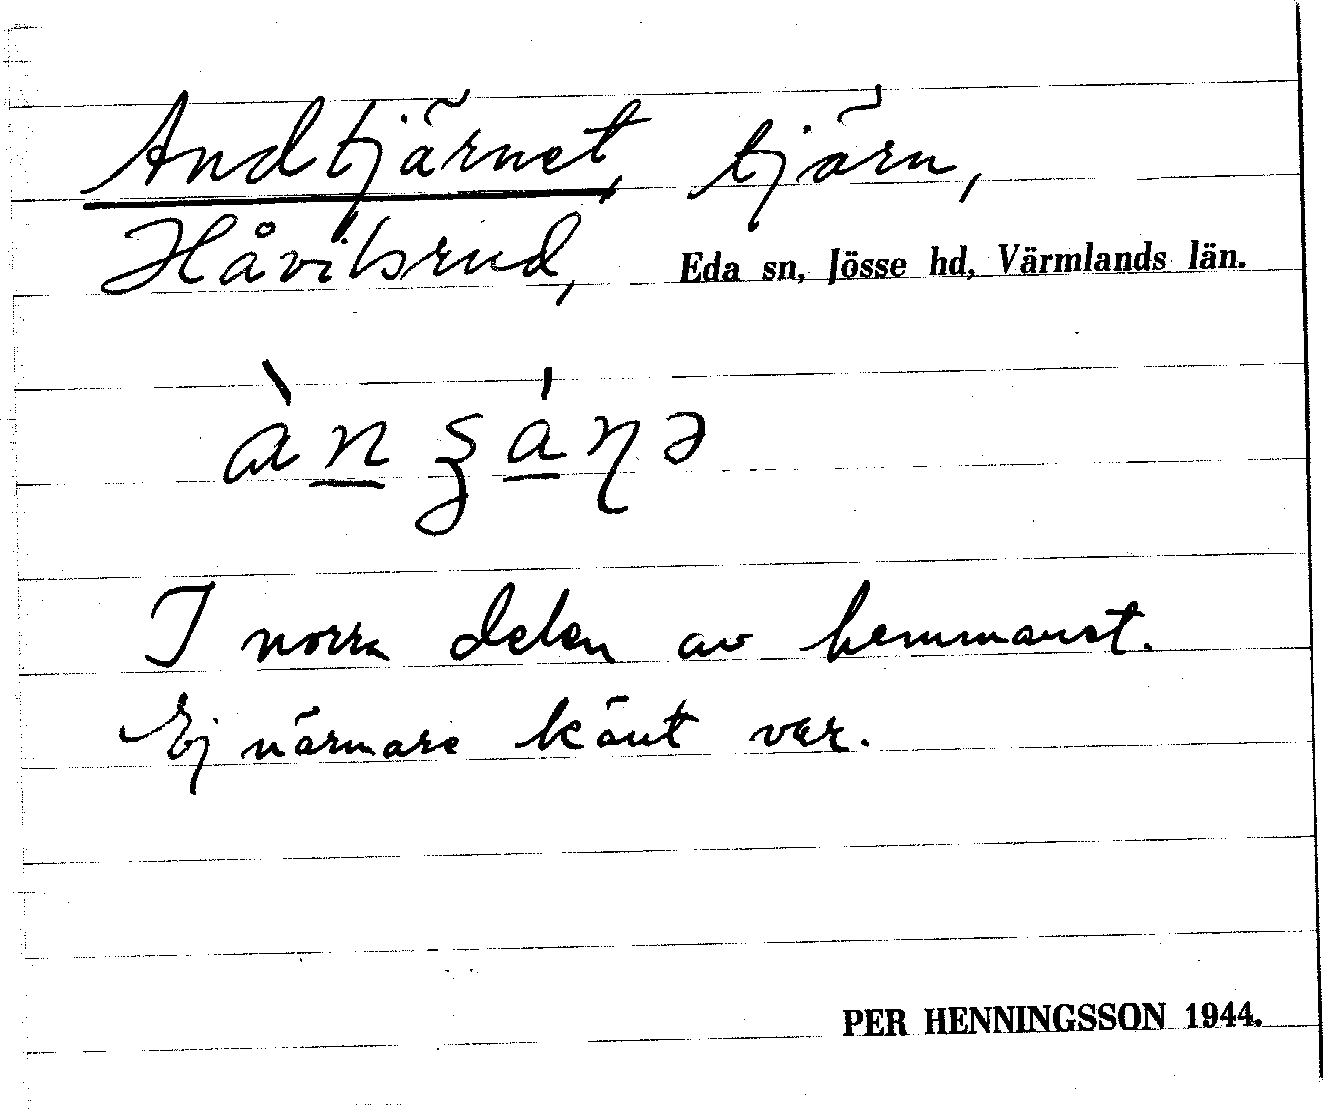 Andtjärnet, tjärn,
Håvilsrud, Eda sn, Jösse hd, Värmlands län.
I norra delen av hemmanet.
Ej närmare känt var.
PER HENNINGSSON 1944.